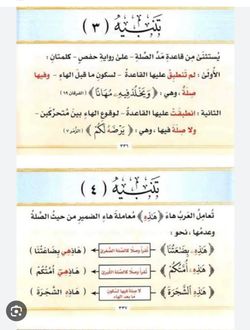 تَنبِيه ( ٣ )
يُستثنَىٰ مِن قاعدةِ مَدِّ الصِّلةِ - علىٰ روايةِ حفصٍ - كلمتانِ :
الأُولىٰ : لم تَنطبِقْ عليها القاعدةُ - لسكونِ ما قبلَ الهاءِ - وفيها
صِلةٌ ، وهي : ﴿ وَيَخۡلُدۡ فِيهِۦ مُهَانًا ﴾ (الفرقان ٦٩)
الثانية : انطبقَتْ عليها القاعدةُ - لوقوعِ الهاءِ بينَ متحرِّكَينِ -
ولا صِلةَ فيها ، وهي : ﴿ يَرۡضَهُ لَكُمۡ ﴾ (الزمر ٧)
٣٣٦
تَنبِيه ( ٤ )
تُعامِلُ العربُ هاءَ ﴿ هَٰذِهِۦ ﴾ مُعاملةَ هاءِ الضميرِ من حيثُ الصِّلةُ
وعدمُها ، نحو :
﴿ هَٰذِهِۦ بِضَٰعَتُنَا ﴾ تُقرأ وصلًا كالصلة الصُّغرىٰ ( هَاذِهِي بِضَاعَتُنَا )
﴿ هَٰذِهِۦٓ أُمَّتُكُمۡ ﴾ تُقرأ وصلًا كالصلة الكُبرىٰ ( هَاذِهِيٓ أُمَّتُكُمْ )
﴿ هَٰذِهِ ٱلشَّجَرَةَ ﴾ لا صلة فيها لسكون ما بعد الهاء ( هَاذِهِ الشَّجَرَةَ )
٣٣٧